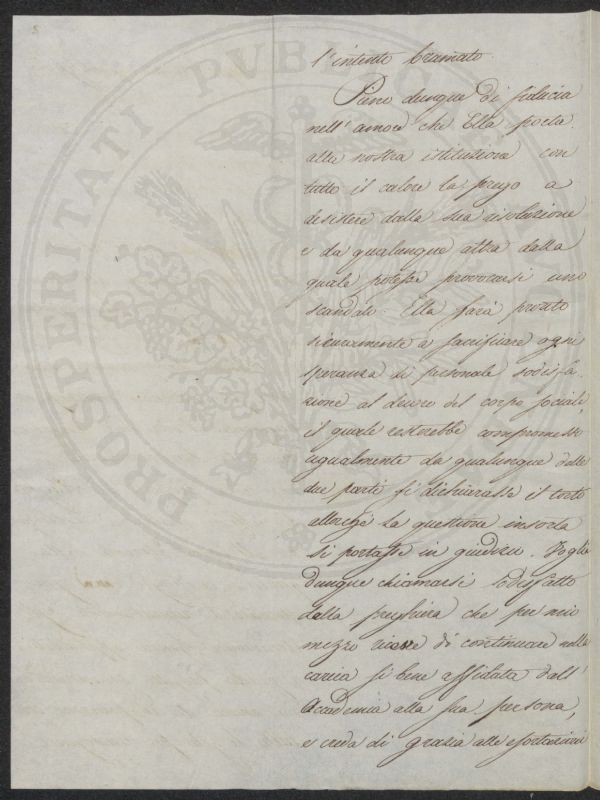 l'intento bramato.
Pieno dunque di fiducia
nell'amore che Ella porta
alla nostra istituzione con
tutto il calore la prego a
desistere dalla sua risoluzione
e da qualunque altra dalla
quale potesse provocarsi uno
scandalo. Ella sarà pronto
sicuramente a sacrificare ogni
speranza di personale sodisfa
zione al decoro del corpo sociale,
il quale resterebbe compromesso
ugualmente da qualunque delle
due parti si dichiarasse il torto
allorchè la questione insorta
si portasse in giudizio. Voglia
dunque chiamarsi sodisfatto
dalla preghiera che per mio
mezzo riceve di continuare nella
carica sì bene affidata dall'
Accademia alla sua persona,
e creda di grazia alle esortazioni
PROSPERITATI PVBLIC